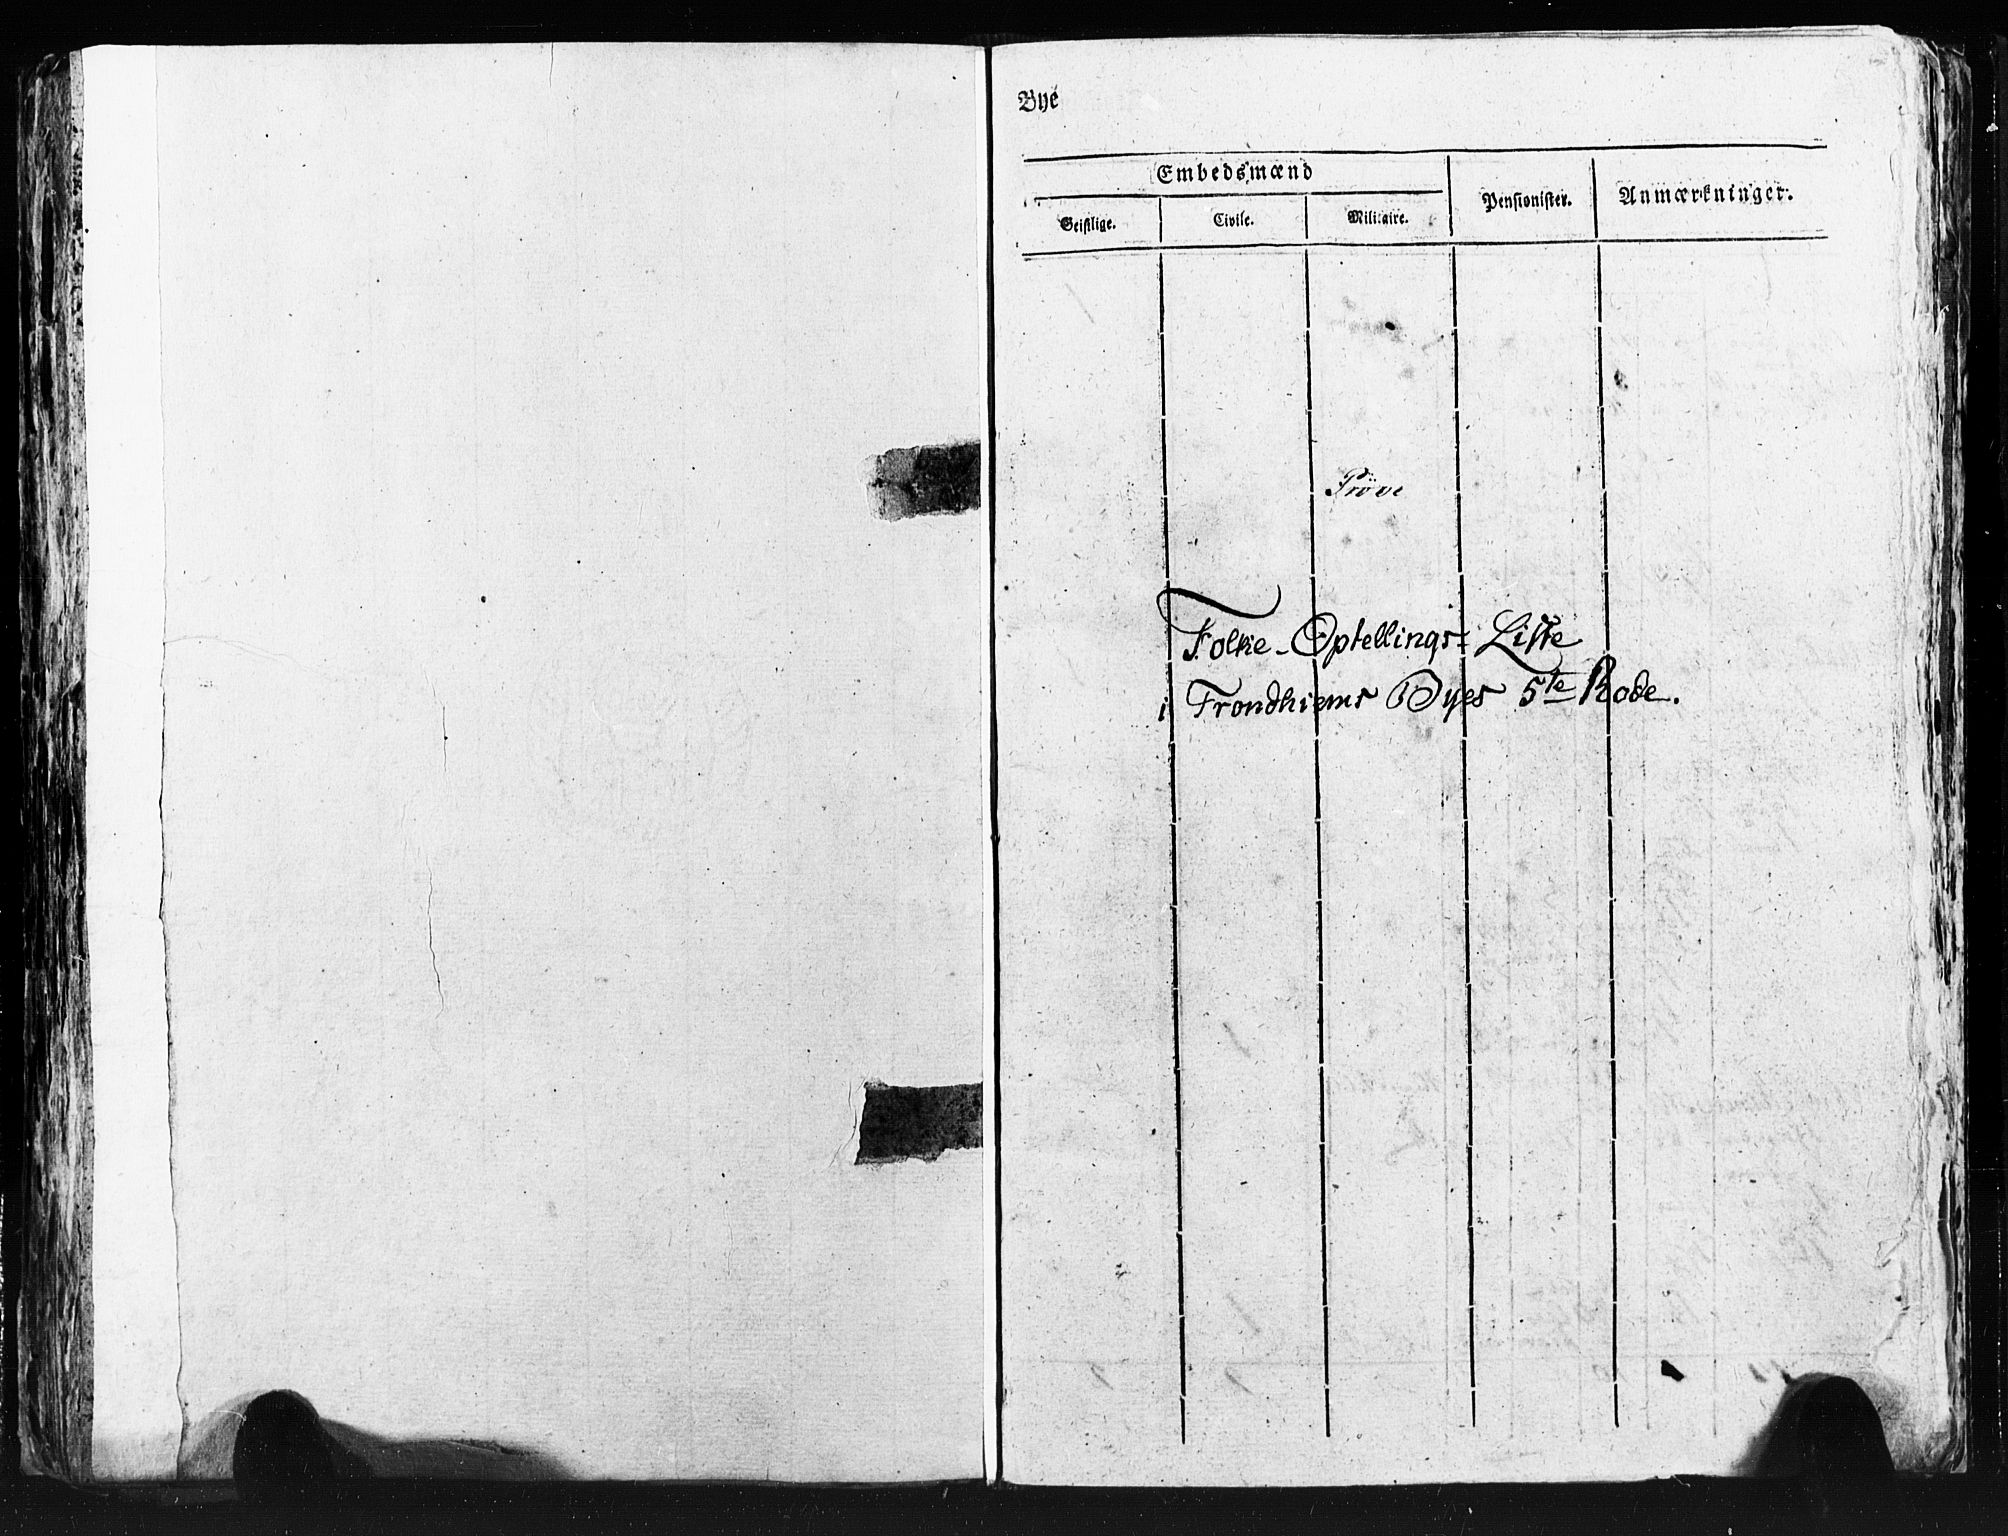 Bye
Embedsmænd
Pensionister.
Anmærkninger.
Geistlige.
Civile.
Militaire.
Prøve
Folke-Optellings-Liste
i Trondhiems Byes 5te Rode.